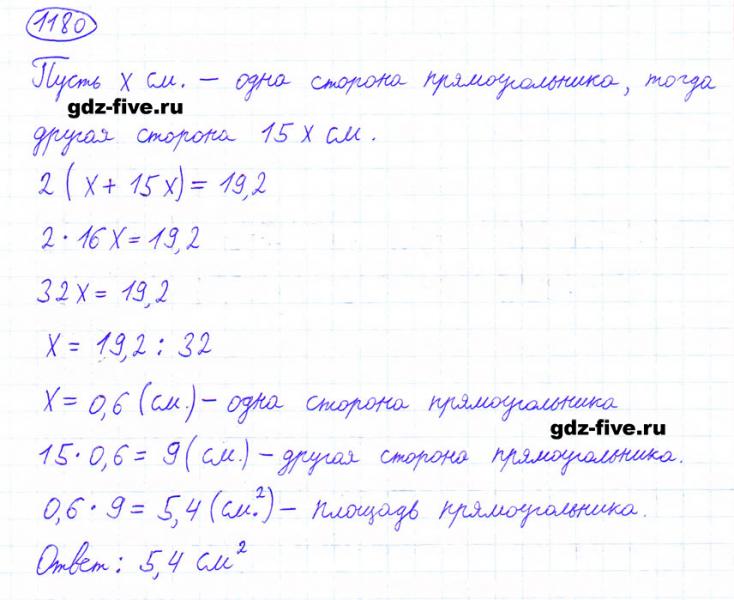 1180
Пусть x см. – одна сторона прямоугольника, тогда
gdz-five.ru
другая сторона 15x см.
2(x + 15x) = 19,2
2 · 16x = 19,2
32x = 19,2
x = 19,2 : 32
x = 0,6 (см.) – одна сторона прямоугольника
gdz-five.ru
15 · 0,6 = 9 (см.) – другая сторона прямоугольника.
0,6 · 9 = 5,4 (см.²) – площадь прямоугольника.
Ответ: 5,4 см²